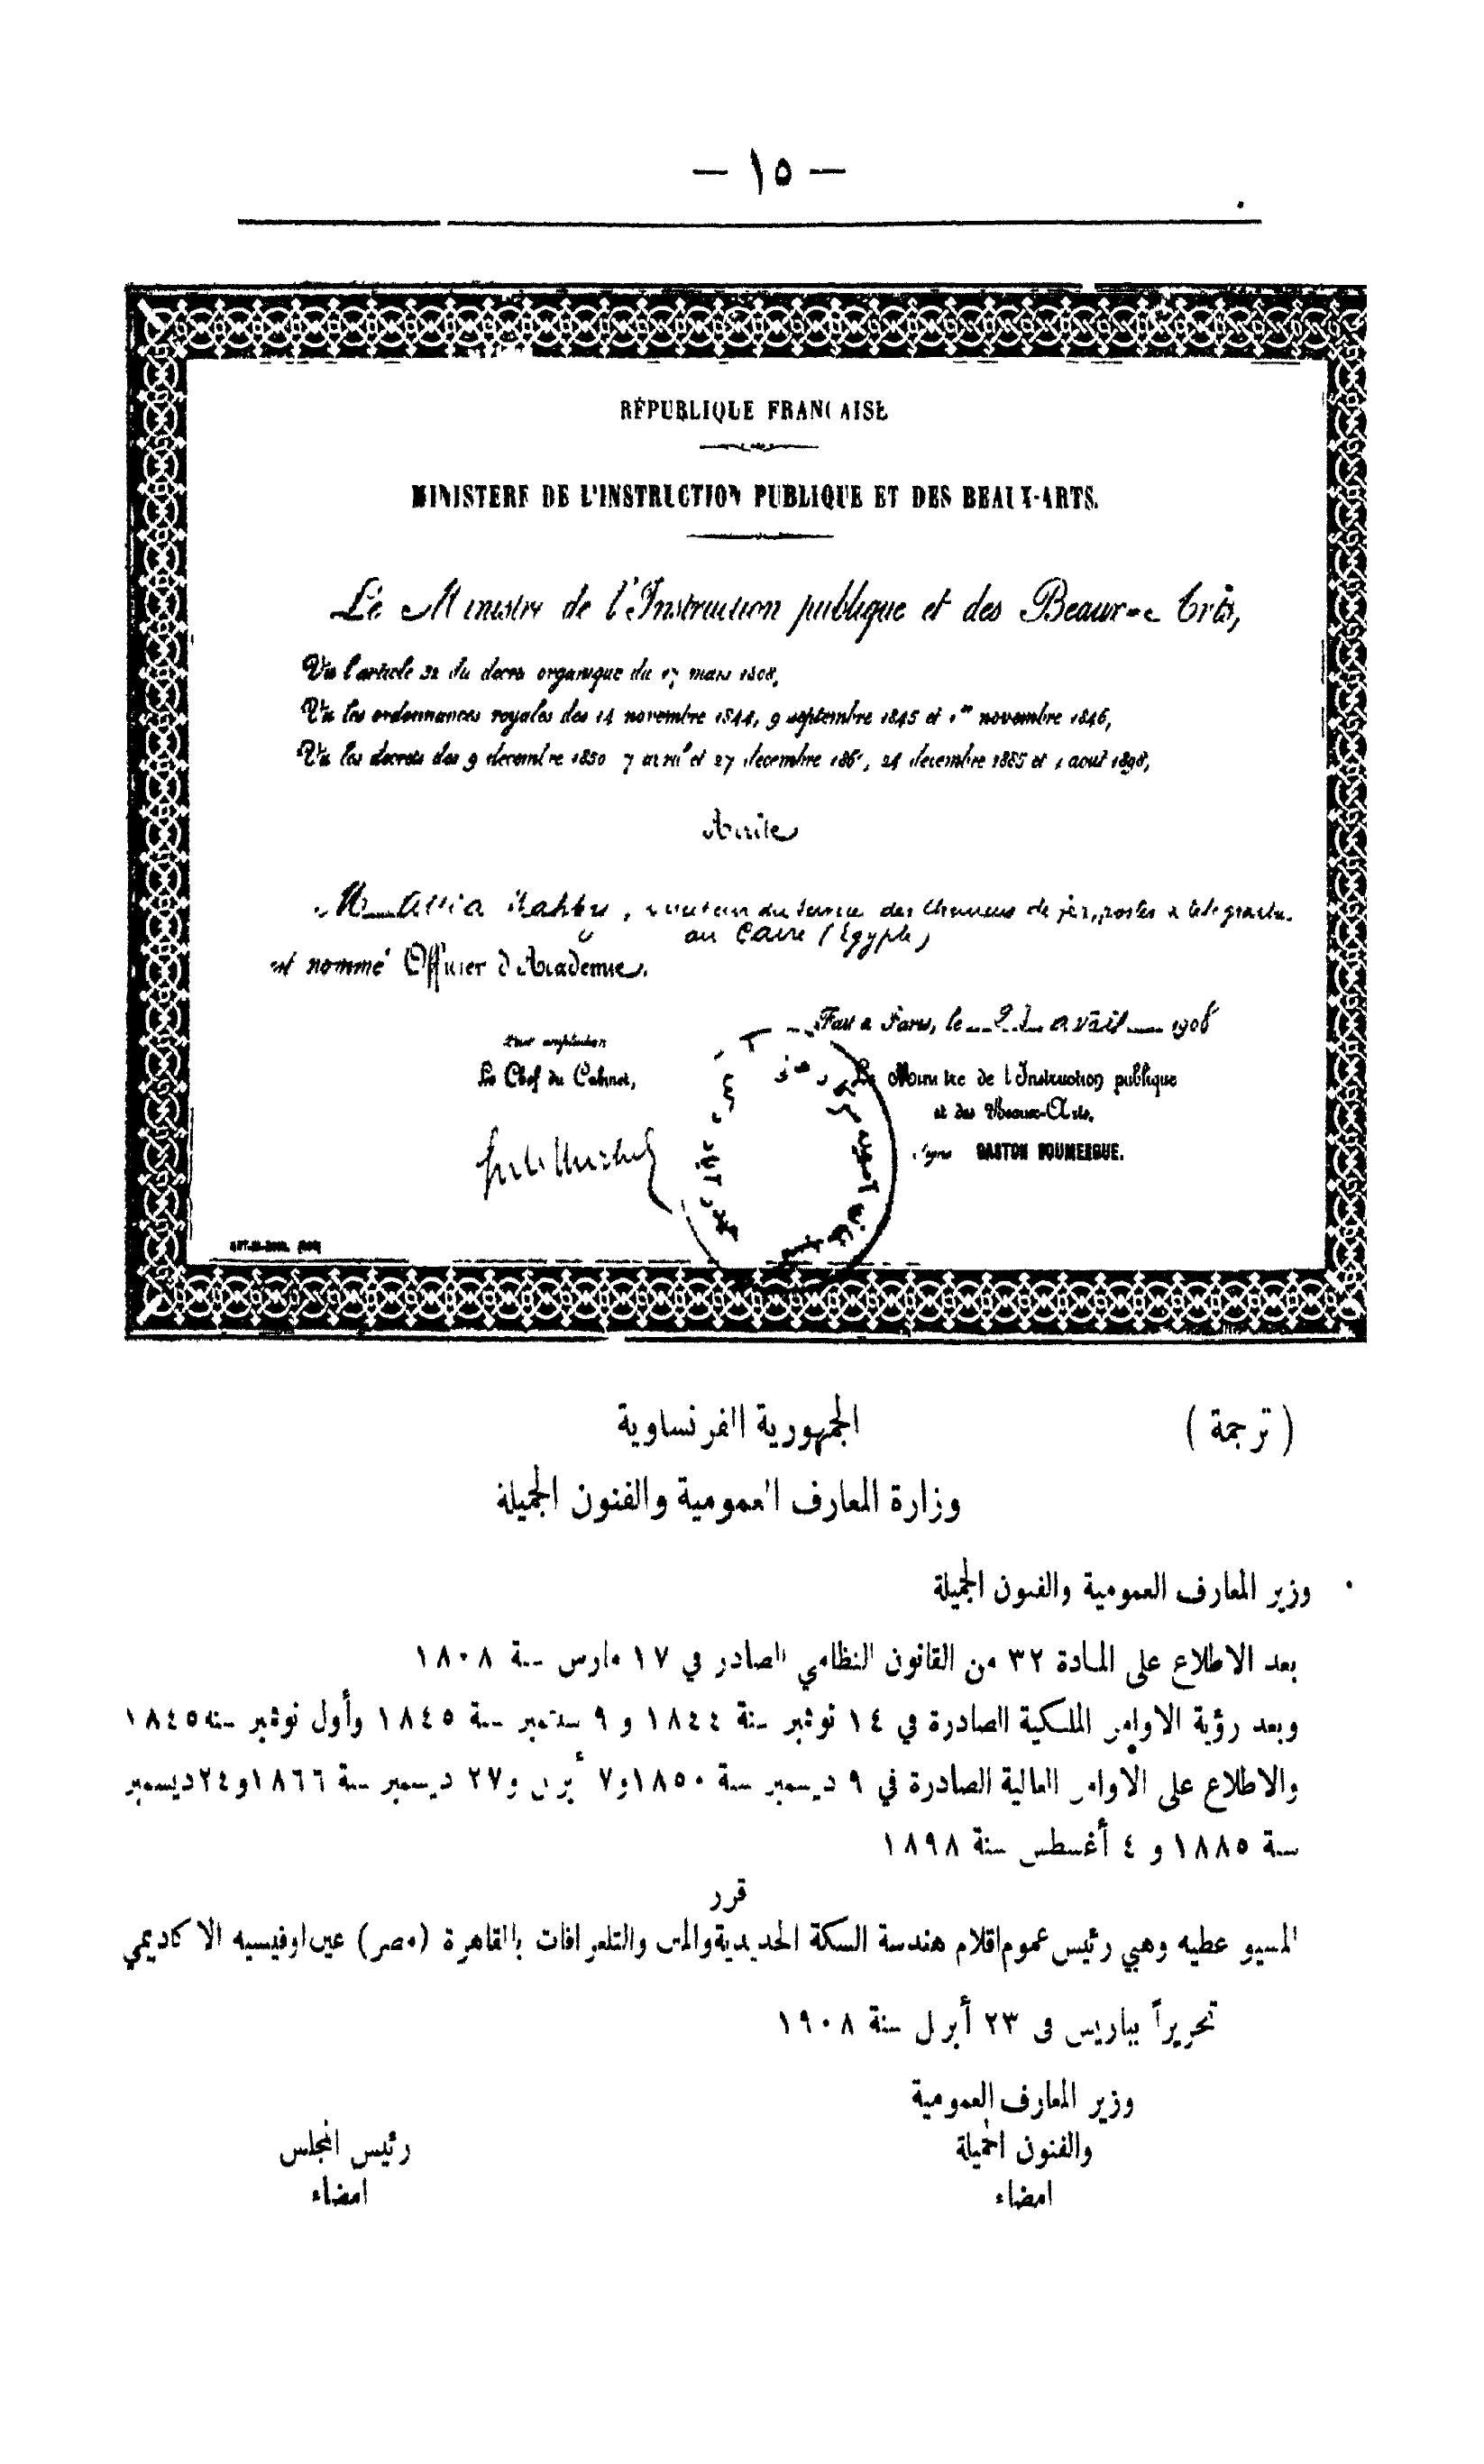 — ١٥ —
RÉPUBLIQUE FRANCAISE
MINISTERE DE L'INSTRUCTION PUBLIQUE ET DES BEAUX-ARTS.
Le Ministre de l'Instruction publique et des Beaux-Arts,
Vu l'article 32 du decret organique du 17 mars 1808,
Vu les ordonnances royales des 14 novembre 1844, 9 septembre 1845 et 1er novembre 1846,
Vu les decrets des 9 decembre 1850 7 avril et 27 decembre 1866, 24 decembre 1885 et 4 aout 1898,
Arrête
Mr Attia Wahby, du Service des Chemins de fer, postes & telegraphes
au Caire (Egypte)
est nommé Officier d'Academie.
Fait a Paris, le avril 1908
Pour ampliation
Le Chef du Cabinet,
Le Ministre de l'Instruction publique
et des Beaux-Arts,
Signé GASTON DOUMERGUE.
( ترجمة )
الجمهورية الفرنساوية
وزارة المعارف العمومية والفنون الجميلة
وزير المعارف العمومية والفنون الجميلة
بعد الاطلاع على المادة ٣٢ من القانون النظامي الصادر في ١٧ مارس سنة ١٨٠٨
وبعد رؤية الاوامر الملكية الصادرة في ١٤ نوفمبر سنة ١٨٤٤ و ٩ سبتمبر سنة ١٨٤٥ وأول نوفمبر سنة ١٨٤٥
والاطلاع على الاوامر العالية الصادرة في ٩ ديسمبر سنة ١٨٥٠ و٧ أبريل و٢٧ ديسمبر سنة ١٨٦٦ و٢٤ ديسمبر
سنة ١٨٨٥ و ٤ أغسطس سنة ١٨٩٨
قرر
المسيو عطيه وهبي رئيس عموم اقلام هندسة السكة الحديدية والتلغرافات بالقاهرة (مصر) عين اوفيسيه الاكاديمي
تحريراً بباريس في ٢٣ أبريل سنة ١٩٠٨
وزير المعارف العمومية
والفنون الجميلة
امضاء
رئيس المجلس
امضاء